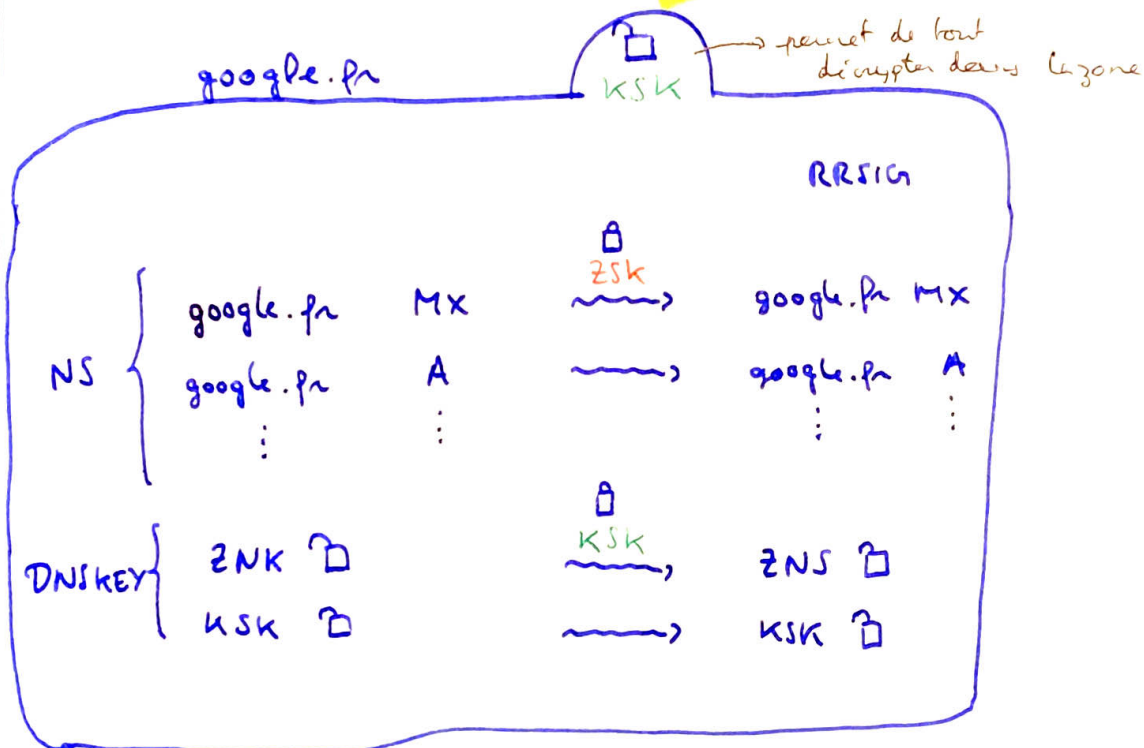 google.fr
KSK
permet de tout
décrypter dans la zone
RRSIG
ZSK
google.fr MX google.fr MX
NS
google.fr A google.fr A
KSK
DNSKEY
ZNK ZNS
KSK KSK